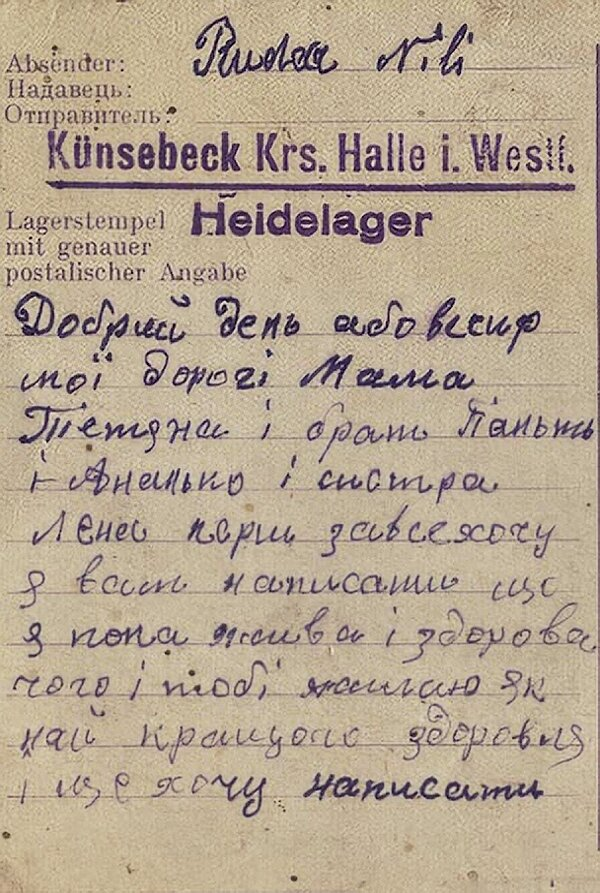 Absender: Ruda Nili
Надавець:
Отправитель:
Künsebeck Krs. Halle i. Westf.
Lagerstempel Heidelager
mit genauer
postalischer Angabe
Добрий день або вечир
мої дорогі Мама
Тетяна і брат
і Ананько і систра
Лена перш завсехочу
я вам написати що
я пока жива і здорова
чого і тобі жилаю як
най кращого здоровля
і ще хочу написати